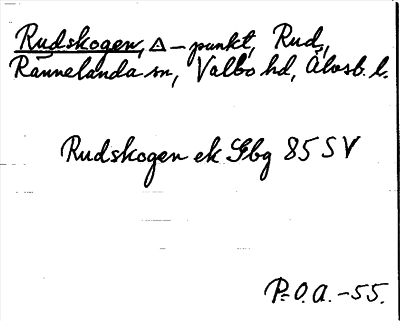 Rudskogen, △-punkt, Rud,
Rännelanda sn, Valbo hd, Älvsb. l.
Rudskogen ek. Gbg 85 SV
P.O.A. -55.